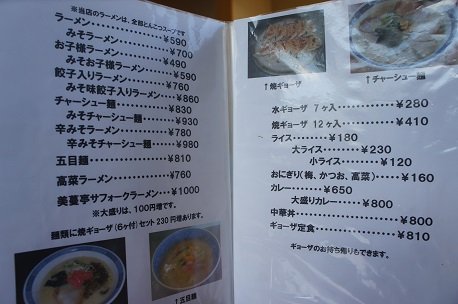 ※当店のラーメンは、全部とんこつスープです
ラーメン・・・・・・・・・・・・・・￥590
みそラーメン・・・・・・・・・・￥700
お子様ラーメン・・・・・・・・・￥490
みそお子様ラーメン・・・・・￥580
餃子入りラーメン・・・・・・・￥760
みそ味餃子入りラーメン・・￥860
チャーシュー麺・・・・・・・・・￥830
みそチャーシュー麺・・・・・￥930
辛みそラーメン・・・・・・・・・￥780
辛みそチャーシュー麺・・・￥980
五目麺・・・・・・・・・・・・・・・・￥810
高菜ラーメン・・・・・・・・・・・￥760
美蔓亭サフォークラーメン・・￥1000
※大盛りは、100円増です。
麺類に焼ギョーザ(6ヶ付)セット 230円増おります。
↑五目麺
↑焼ギョーザ
↑チャーシュー麺
水ギョーザ 7ヶ入・・・・・・・・￥280
焼ギョーザ 12ヶ入・・・・・・・￥410
ライス・・・・・・・￥180
大ライス・・・・・・・・￥230
小ライス・・・・・・・・￥120
おにぎり(梅、かつお、高菜)・・・・￥160
カレー・・・・・・・￥650
大盛りカレー・・・・・・￥800
中華丼・・・・・・・・・・・・・・・￥800
ギョーザ定食・・・・・・・・・・￥810
ギョーザのお持ち帰りもできます。